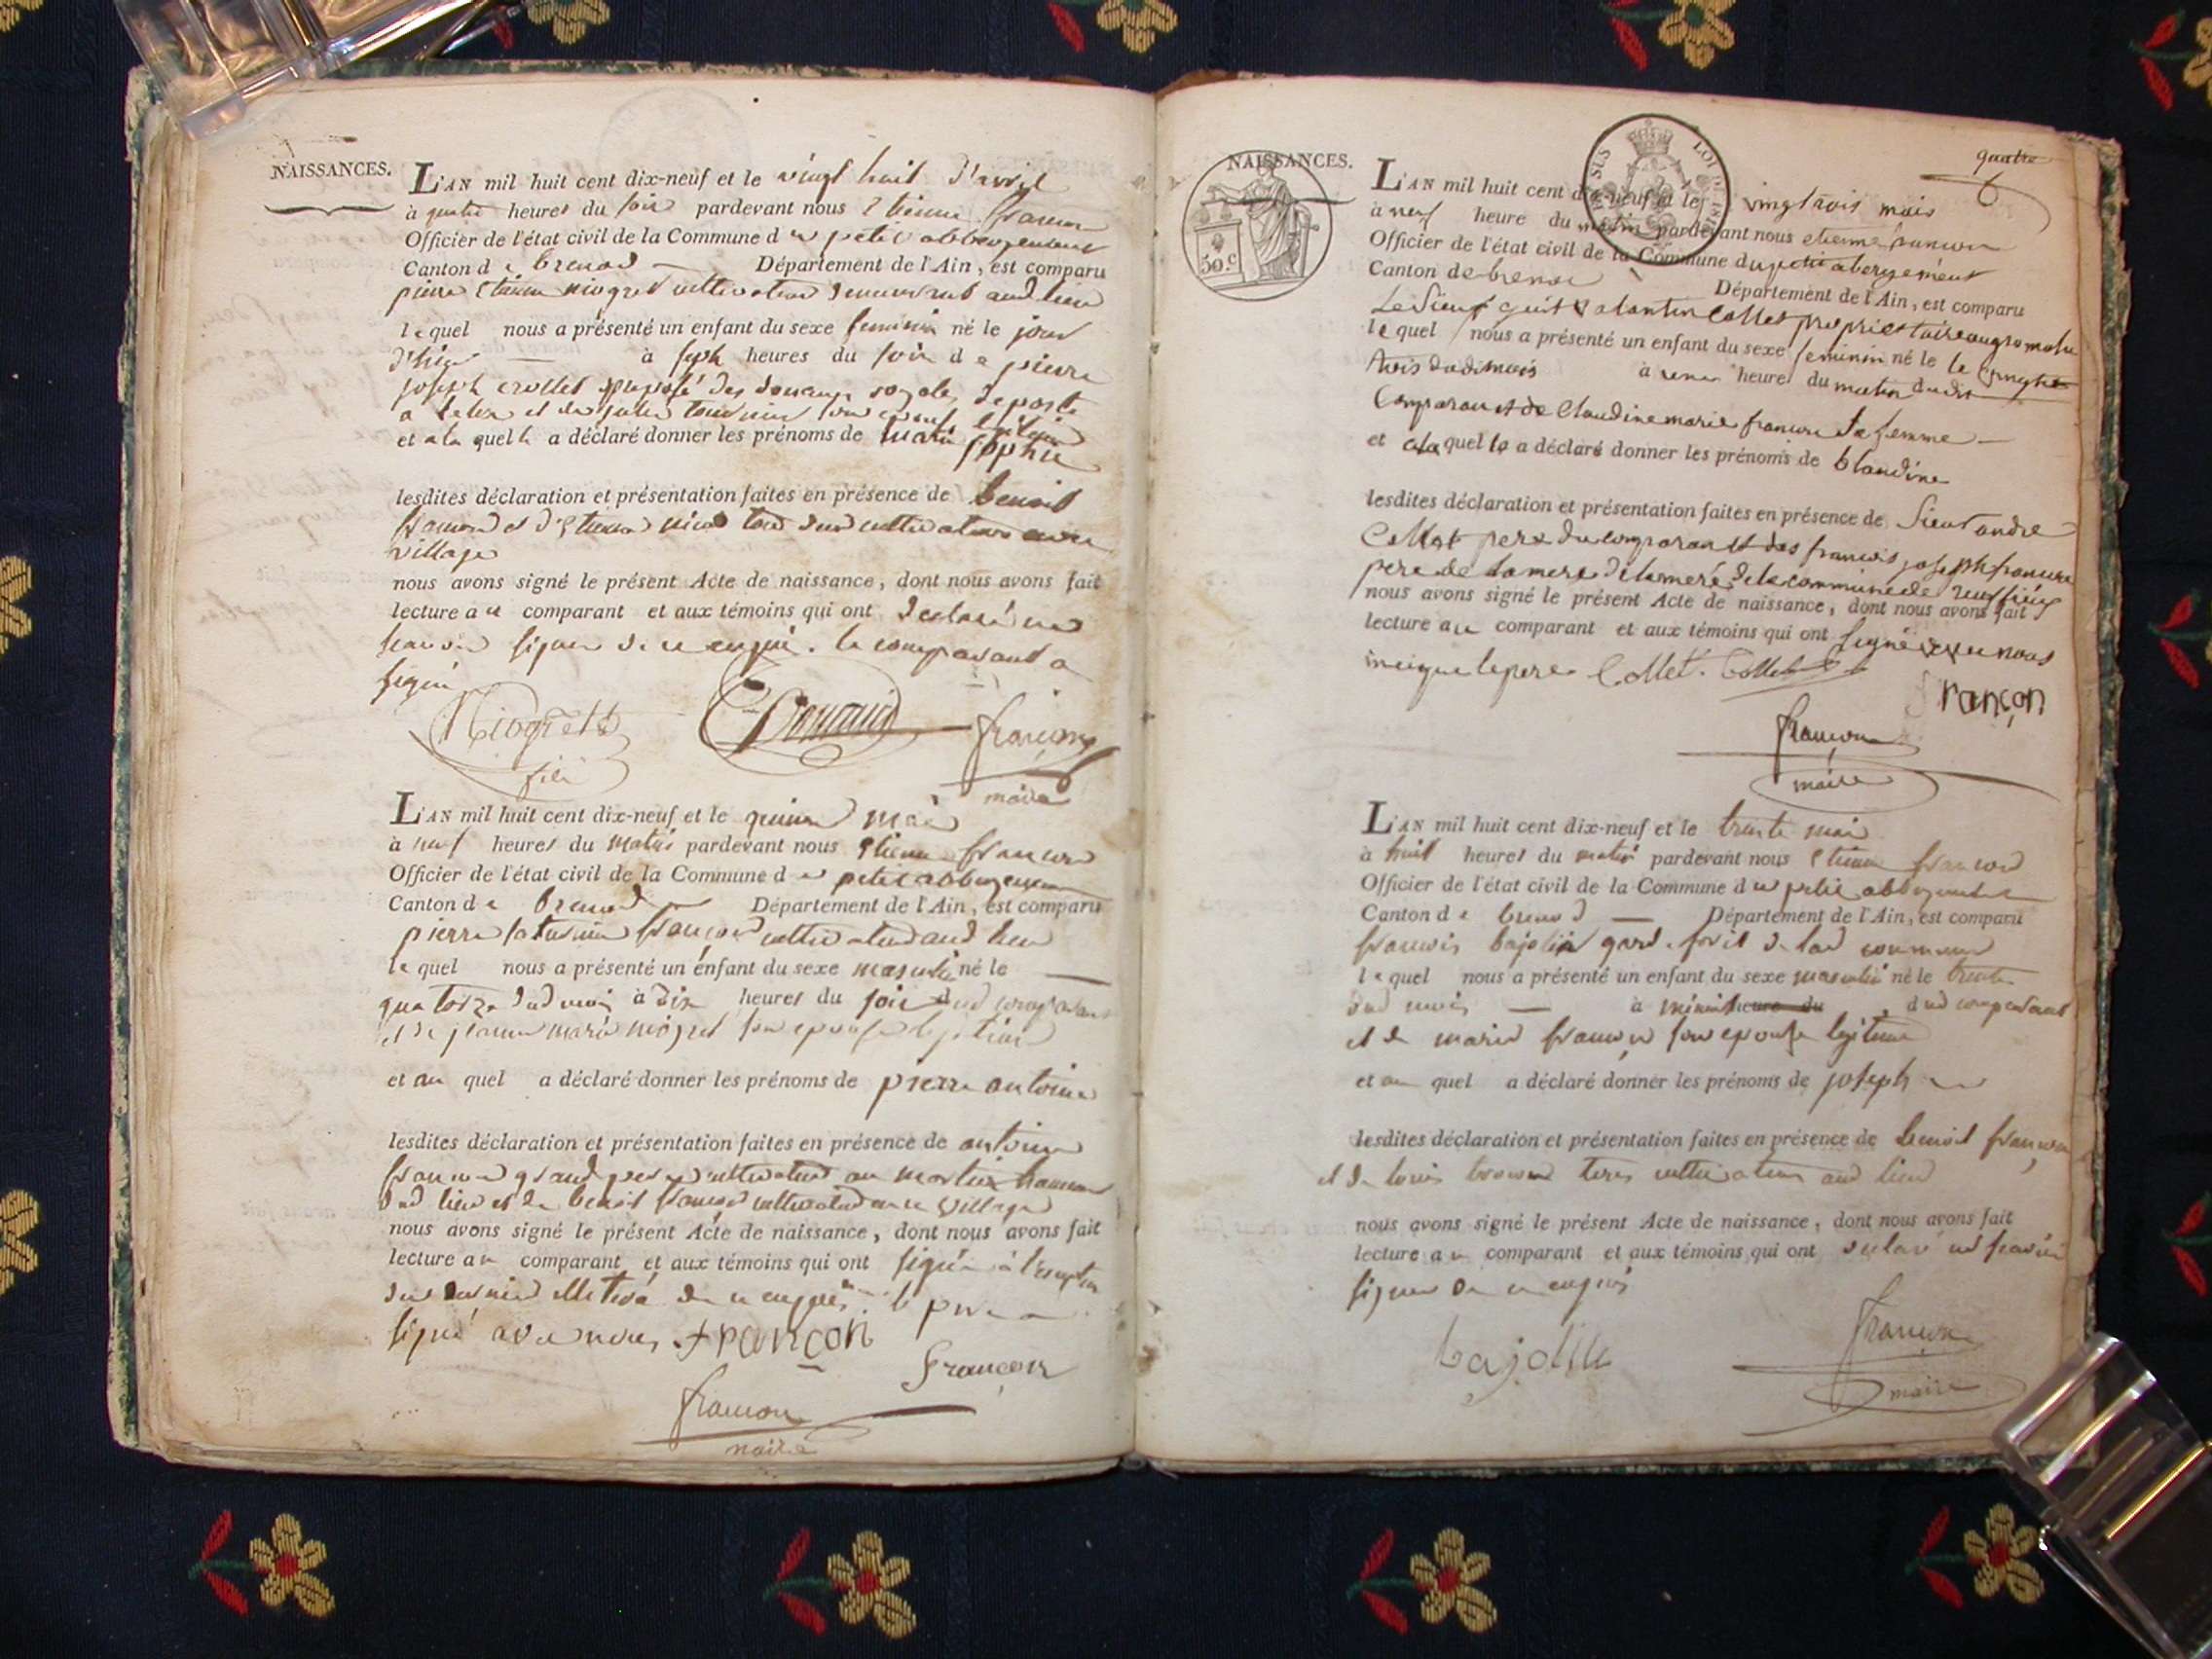 NAISSANCES.
L'AN mil huit cent dix-neuf et le vingt huit d'avril
à quatre heures du soir pardevant nous Etienne françon
Officier de l'état civil de la Commune du petit abbergement
Canton de brenod Département de l'Ain, est comparu
pierre Etienne niogret cultivateur demeurant aud lieu
lequel nous a présenté un enfant du sexe feminin né le jour
d'hier à sept heures du soir de pierre
joseph crollet préposé des douanes royales de poste
a et de son epouse legitime
et a la quelle a déclaré donner les prénoms de marie
sophie
lesdites déclaration et présentation faites en présence de benoit
françon et d'Etienne tous deux cultivateurs
village
nous avons signé le présent Acte de naissance, dont nous avons fait
lecture au comparant et aux témoins qui ont declaré ne
savoir signer de ce enquis. le comparant a
signé
Niogret françon
fils maire
L'AN mil huit cent dix-neuf et le quinze mai
à neuf heures du matin pardevant nous Etienne françon
Officier de l'état civil de la Commune du petit abbergement
Canton de brenod Département de l'Ain, est comparu
pierre saturnin françon cultivateur aud lieu
lequel nous a présenté un enfant du sexe masculin né le
quatorze dud mois à dix heures du soir dud comparant
et de jeanne marie niogret son epouse legitime
et au quel a déclaré donner les prénoms de pierre antoine
lesdites déclaration et présentation faites en présence de antoine
françon grand pere cultivateur au
dud lieu et de benoit françon cultivateur en ce village
nous avons signé le présent Acte de naissance, dont nous avons fait
lecture au comparant et aux témoins qui ont signé à l'exception
du dernier de ce enquis. le pere a
signé avec nous. françon
françon
françon
maire
quatre
NAISSANCES.
50.c
L'AN mil huit cent dix-neuf et le vingtrois mais
à neuf heure du matin pardevant nous etienne françon
Officier de l'état civil de la Commune du petit abergement
Canton de brenod Département de l'Ain, est comparu
Le Sieur Collet propriettaire
lequel nous a présenté un enfant du sexe feminin né le le vingt
trois dudi mois à heure du matin dudit
Comparant et de Claudine marie françon sa femme
et a la quelle a déclaré donner les prénoms de blandine
lesdites déclaration et présentation faites en présence de Sieur andré
Collet pere du comparant des françois joseph françon
pere de la mere de la commune de ruffieu
nous avons signé le présent Acte de naissance, dont nous avons fait
lecture au comparant et aux témoins qui ont signé avec nous
le pere Collet. Collet
françon
françon
maire
L'AN mil huit cent dix-neuf et le trente mai
à huit heures du matin pardevant nous Etienne françon
Officier de l'état civil de la Commune du petit abbergement
Canton de brenod Département de l'Ain, est comparu
françois bajolin gard. foret de lad commune
lequel nous a présenté un enfant du sexe masculin né le trente
dud mois à minuit heure du dud comparant
et de marie françon son epouse legitime
et au quel a déclaré donner les prénoms de joseph
lesdites déclaration et présentation faites en présence de benoit françon
et de louis cultivateurs aud lieu
nous avons signé le présent Acte de naissance, dont nous avons fait
lecture au comparant et aux témoins qui ont declaré ne savoir
signer de ce enquis
françon
maire